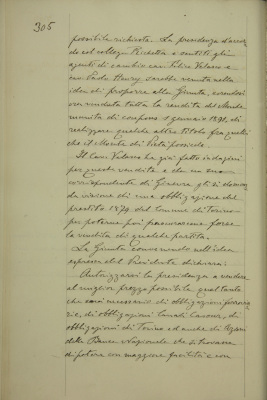 305
possibile richiesta. La presidenza d'accor
do col collega Richetta e sentiti gli
agenti di cambio cav. Felice Valerio e
cav. Paolo Henry sarebbe venuta nella
idea di proporre alla Giunta, essendosi
ora venduta tutta la rendita del Monte
munita di coupons 1 gennaio 1891, di
realizzare qualche altro titolo fra quelli
che il Monte di Pietà possiede.
Il Cav. Valerio ha già fatto indagini
per questa vendita e che un suo
corrispondente di Genova gli si
da visione di una obbligazione del
prestito 1879 del Comune di Torino
per poterne poi
la vendita di qualche partita.
La Giunta convenendo nell'idea
espressa dal Presidente dichiara:
Autorizzarsi la presidenza a vendere
al miglior prezzo possibile quel tanto
che sarà necessario di obbligazioni ferrovia
rie, di obbligazioni Canali Cavour, di
obbligazioni di Torino ed anche di azioni
della Banca Nazionale che si trovasse
di potere con maggiore facilità e con